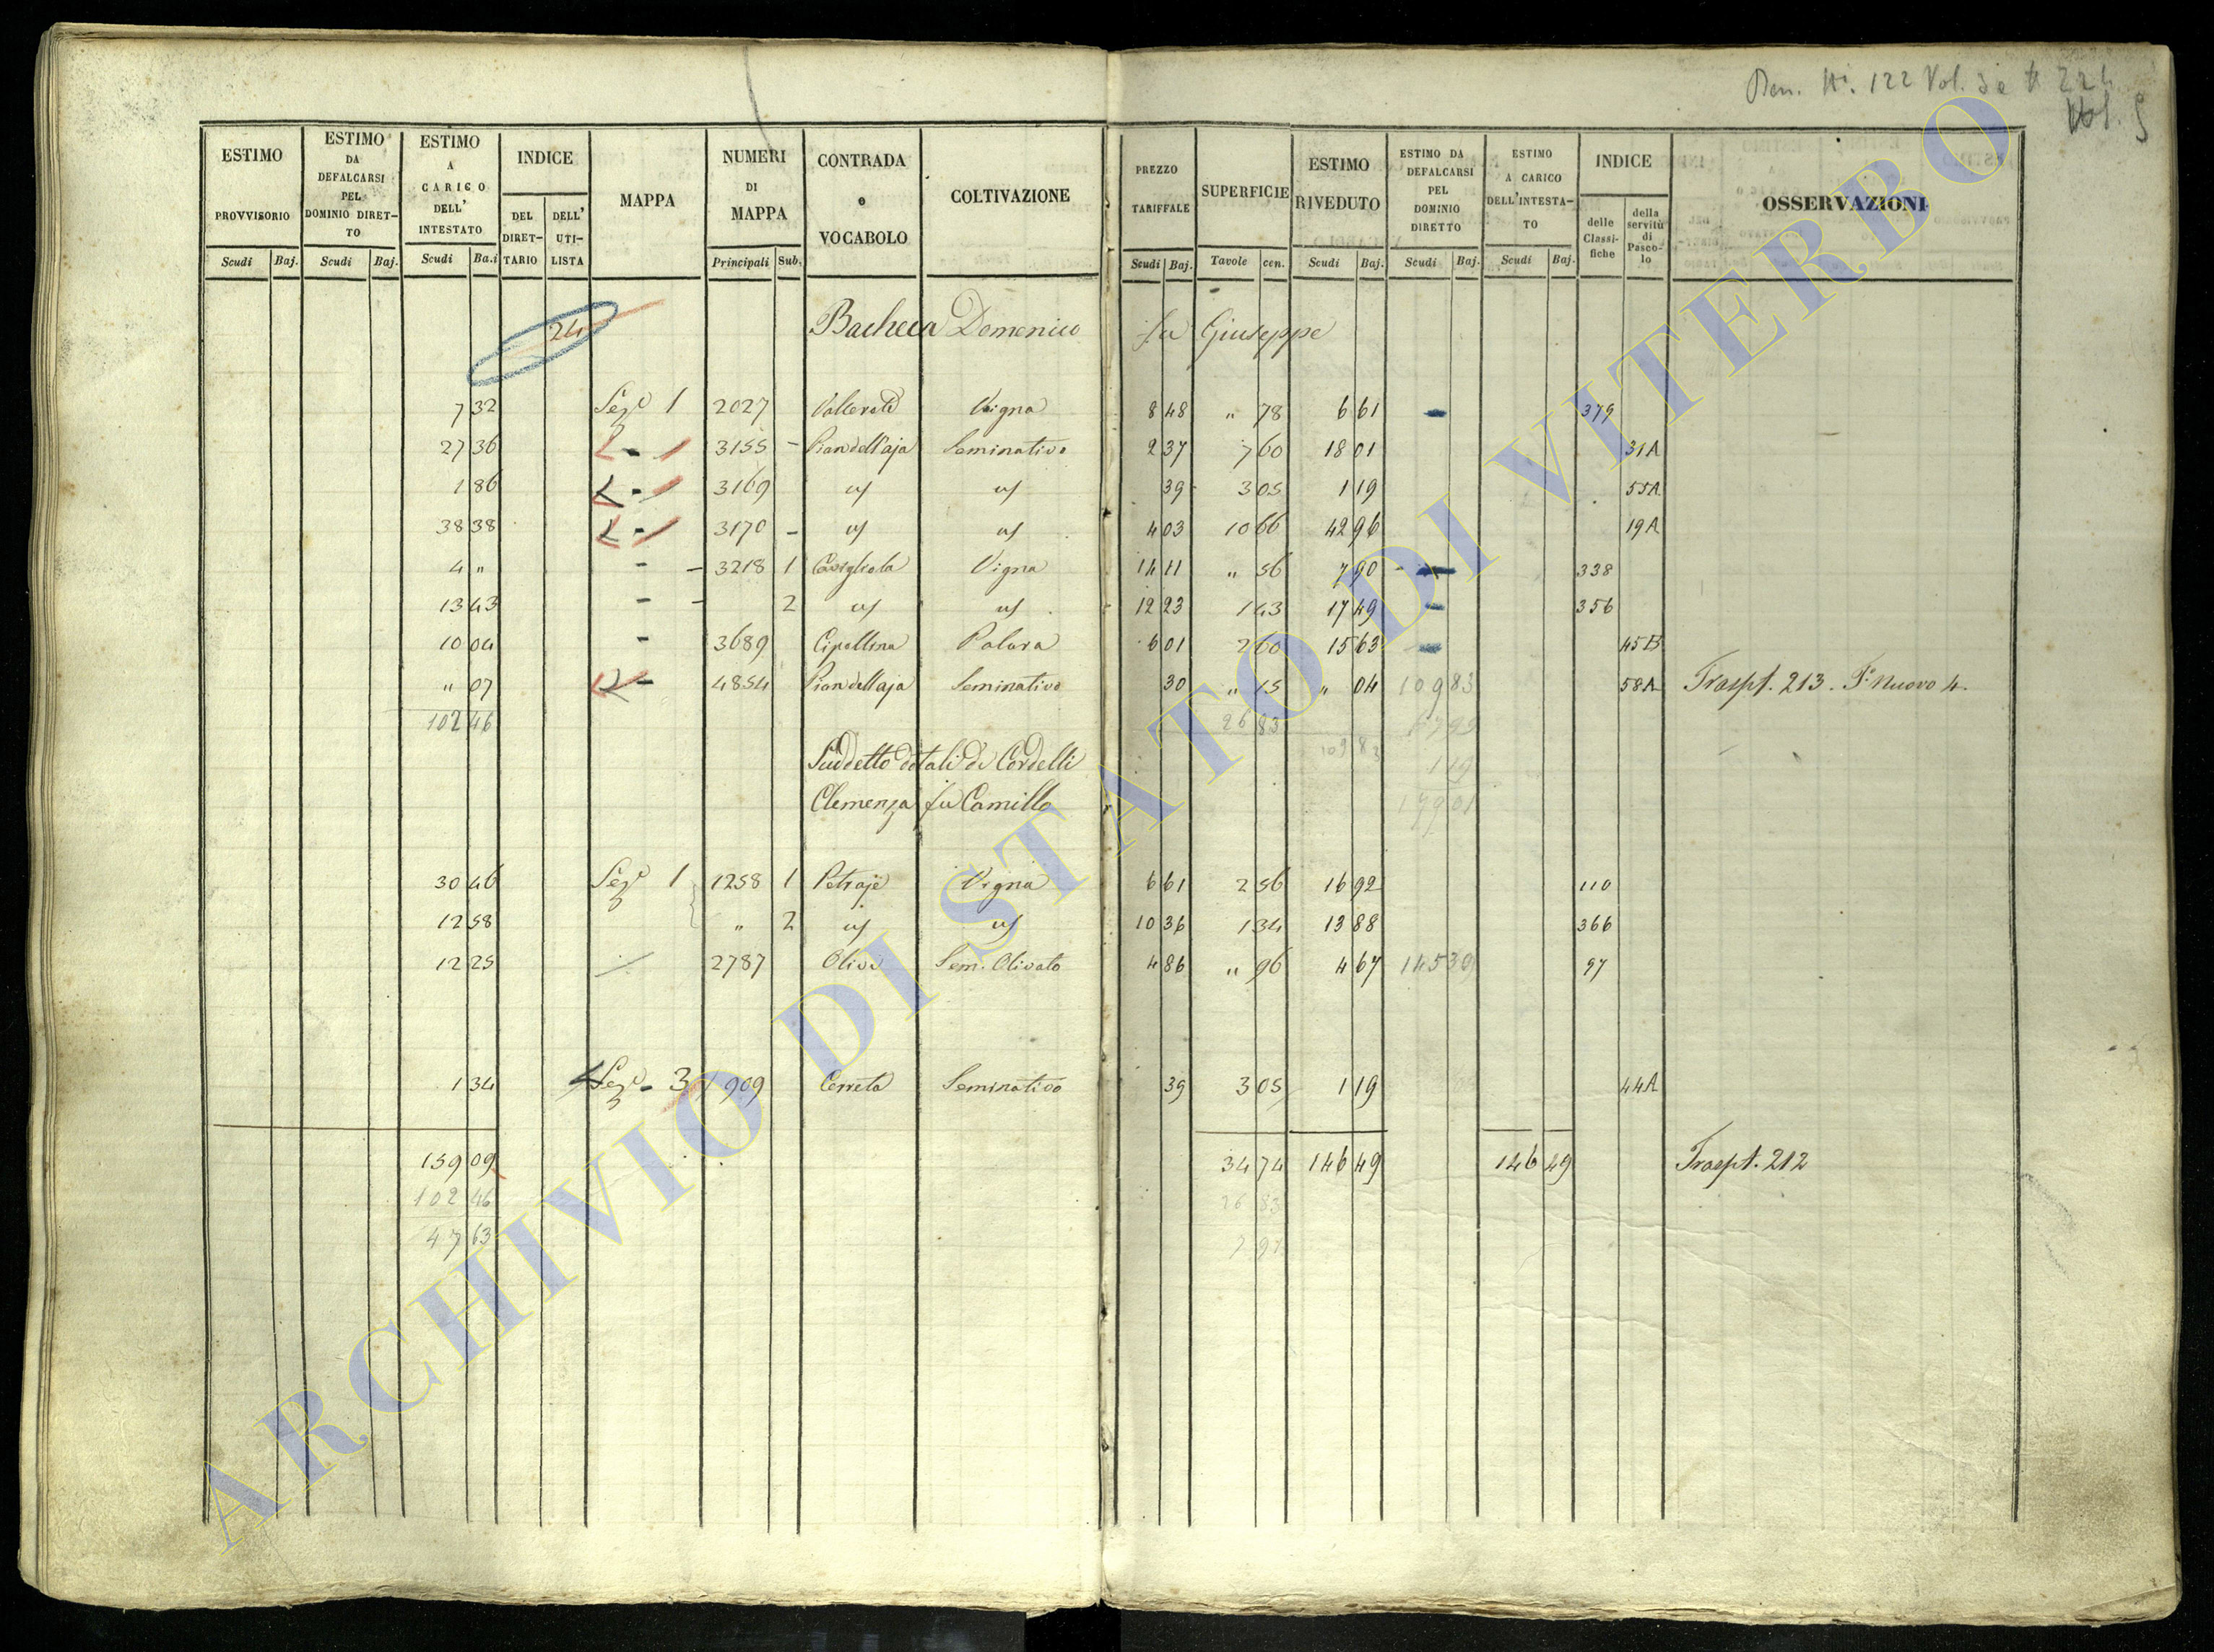 Vol. 3
Vol. 5
ESTIMO PROVVISORIO Scudi Baj.
ESTIMO DA DEFALCARSI PEL DOMINIO DIRET- TO Scudi Baj.
ESTIMO A CARICO DELL' INTESTATO Scudi Ba.i
INDICE DEL DIRET- TARIO DELL' UTI- LISTA
MAPPA
NUMERI DI MAPPA Principali Sub.
CONTRADA e VOCABOLO
COLTIVAZIONE
PREZZO TARIFFALE Scudi Baj.
SUPERFICIE Tavole cen.
ESTIMO RIVEDUTO Scudi Baj.
ESTIMO DA DEFALCARSI PEL DOMINIO DIRETTO Scudi Baj.
ESTIMO A CARICO DELL'INTESTA- TO Scudi Baj.
INDICE delle Classi- fiche della servitù di Pasco- lo
OSSERVAZIONI
24 Bacheca Domenico fu Giuseppe
7 32 Sez.e 1 2027 Vallerati Vigna 8 48 " 78 6 61 379
27 36 - 1 3155 - Piandell'aja Seminativo 2 37 7 60 18 01 31A
1 86 - 1 3169 us us 39 3 05 1 19 55A
38 38 - 1 3170 - us us 4 03 10 66 42 96 19A
4 " - - 3218 1 Cavigliola Vigna 14 11 " 56 7 90 338
13 43 - - 2 us us 12 23 1 43 17 49 356
10 04 - 3689 Cipollina Palara 6 01 2 60 15 63 45B
" 07 - 4854 Piandell'aja Seminativo 30 " 15 " 04 109 83 58A Traspt. 213. P. Nuovo 4.
102 46 26 83
109 83
1 19
Suddetto dotali di Cordelli
Clemenza fu Camillo
30 46 Sez.e 1 1258 1 Petraje Vigna 6 61 2 56 16 92 110
12 58 " 2 us us 10 36 1 34 13 88 366
12 25 2787 Olivi Sem. Olivato 4 86 " 96 4 67 145 30 97
1 34 Sez.e - 3 909 Cerreta Seminativo 39 3 05 1 19 44A
159 09 34 74 146 49 146 49 Traspt. 212
102 46 26 83
47 63 7 91
ARCHIVIO DI STATO DI VITERBO